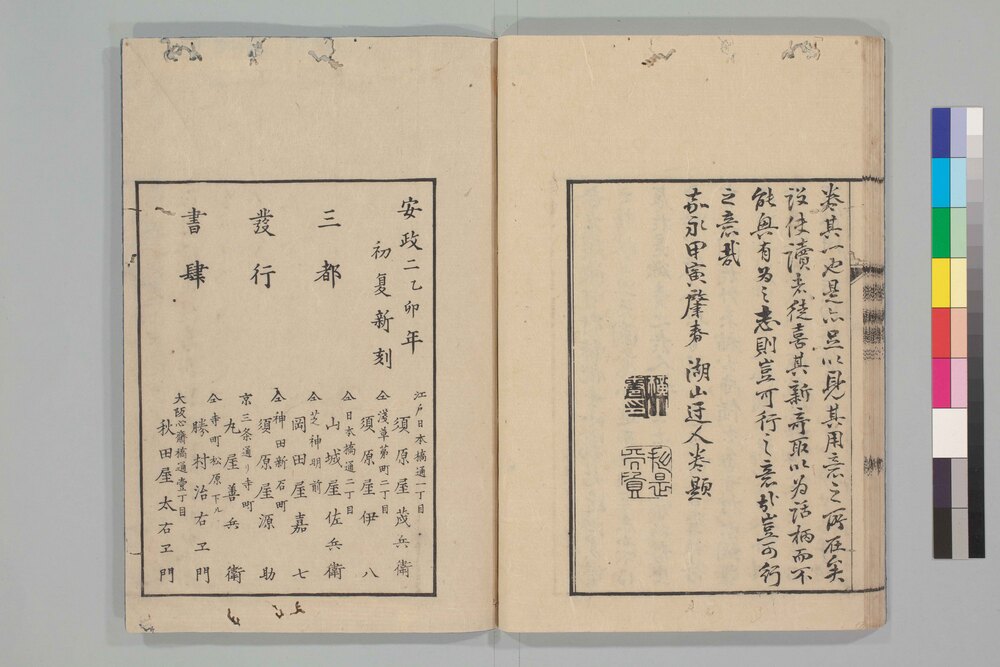 巻其一也是亦足以見其用意之所在矣
設使讀者徒喜其新奇取以为話柄而不
能興有为之志則豈可行之意哉豈可行
之意哉
嘉永甲寅肇春 湖山迂人巻題
安政二乙卯年
初夏新刻
三都
發行
書肆
江戸日本橋通一丁目
須原屋茂兵衛
仝浅草茅町二丁目
須原屋伊八
仝日本橋通二丁目
山城屋佐兵衛
仝芝神明前
岡田屋嘉七
仝神田新石町
須原屋源助
京三条通り寺町
丸屋善兵衛
仝寺町松原下ル
勝村治右ヱ門
大阪心齋橋通壹丁目
秋田屋太右ヱ門